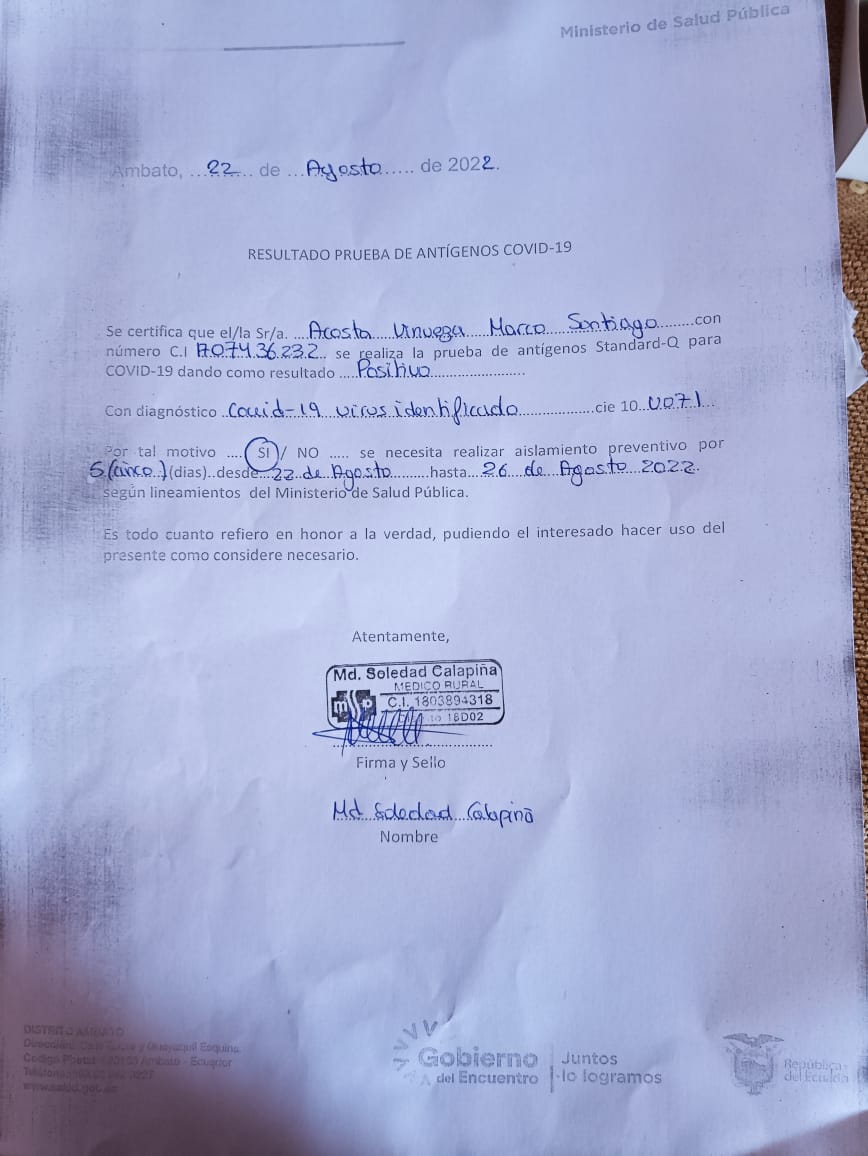 Ministerio de Salud Pública
Ambato, ...22.... de ...Agosto..... de 2022.
RESULTADO PRUEBA DE ANTÍGENOS COVID-19
Se certifica que el/la Sr/a. ...Acosta Vinueza Marco Santiago.........con
número C.I se realiza la prueba de antígenos Standard-Q para
COVID-19 dando como resultado ....Positivo.......................
Con diagnóstico ..Covid-19 virus identificado..................cie 10..U071...
Por tal motivo .... SI / NO ..... se necesita realizar aislamiento preventivo por
5 (cinco.)(dias)..desde...22 de Agosto.........hasta...26 de Agosto 2022.
según lineamientos del Ministerio de Salud Pública.
Es todo cuanto refiero en honor a la verdad, pudiendo el interesado hacer uso del
presente como considere necesario.
Atentamente,
Md. Soledad Calapiña
MEDICO RURAL
msp C.I. 1803894318
18D02
Firma y Sello
Md. Soledad Calapiña
Nombre
DISTRITO AMBATO
y Guayaquil Esquina
Ambato - Ecuador
Gobierno del Encuentro
Juntos lo logramos
República del Ecuador